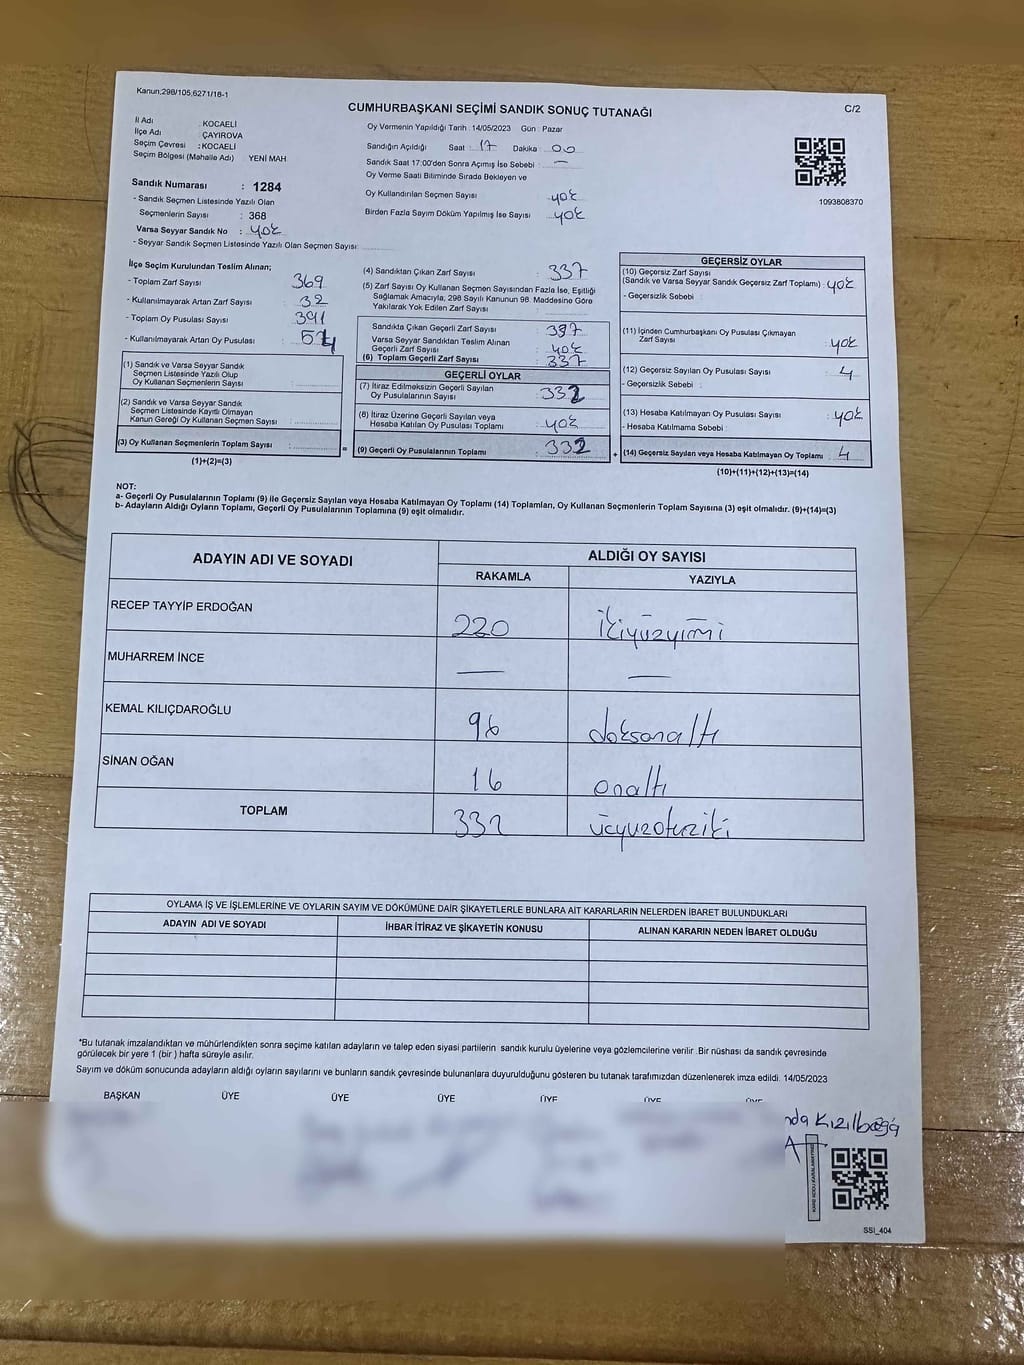 Kanun,298/105,6271/16-1
CUMHURBAŞKANI SEÇİMİ SANDIK SONUÇ TUTANAĞI
C/2
İl Adı : KOCAELİ
İlçe Adı ÇAYIROVA
Seçim Çevresi : KOCAELİ
Seçim Bölgesi (Mahalle Adı) YENİ MAH
Sandık Numarası : 1284
- Sandık Seçmen Listesinde Yazılı Olan
Seçmenlerin Sayısı : 368
Varsa Seyyar Sandık No : yok
- Seyyar Sandık Seçmen Listesinde Yazılı Olan Seçmen Sayısı:
Oy Vermenin Yapıldığı Tarih :14/05/2023 Gün : Pazar
Sandığın Açıldığı Saat : 17 Dakika : 00
Sandık Saat 17:00'den Sonra Açımış İse Sebebi : —
Oy Verme Saati Bitiminde Sırada Bekleyen ve
Oy Kullandırılan Seçmen Sayısı : yok
Birden Fazla Sayım Döküm Yapılmış İse Sayısı : yok
1093808370
İlçe Seçim Kurulundan Teslim Alınan;
- Toplam Zarf Sayısı : 369
- Kullanılmayarak Artan Zarf Sayısı : 32
- Toplam Oy Pusulası Sayısı : 391
- Kullanılmayarak Artan Oy Pusulası : 54
(1) Sandık ve Varsa Seyyar Sandık
Seçmen Listesinde Yazılı Olup
Oy Kullanan Seçmenlerin Sayısı :
(2) Sandık ve Varsa Seyyar Sandık
Seçmen Listesinde Kayıtlı Olmayan
Kanun Gereği Oy Kullanan Seçmen Sayısı :
(3) Oy Kullanan Seçmenlerin Toplam Sayısı : =
(1)+(2)=(3)
(4) Sandıktan Çıkan Zarf Sayısı : 337
(5) Zarf Sayısı Oy Kullanan Seçmen Sayısından Fazla İse, Eşitliği
Sağlamak Amacıyla, 298 Sayılı Kanunun 98. Maddesine Göre
Yakılarak Yok Edilen Zarf Sayısı :
Sandıkta Çıkan Geçerli Zarf Sayısı : 337
Varsa Seyyar Sandıktan Teslim Alınan
Geçerli Zarf Sayısı : yok
(6) Toplam Geçerli Zarf Sayısı : 337
GEÇERLİ OYLAR
(7) İtiraz Edilmeksizin Geçerli Sayılan
Oy Pusulalarının Sayısı : 332
(8) İtiraz Üzerine Geçerli Sayılan veya
Hesaba Katılan Oy Pusulası Toplamı : yok
(9) Geçerli Oy Pusulalarının Toplamı : 332 +
GEÇERSİZ OYLAR
(10) Geçersiz Zarf Sayısı
(Sandık ve Varsa Seyyar Sandık Geçersiz Zarf Toplamı) : yok
- Geçersizlik Sebebi :
(11) İçinden Cumhurbaşkanı Oy Pusulası Çıkmayan
Zarf Sayısı : yok
(12) Geçersiz Sayılan Oy Pusulası Sayısı : 4
- Geçersizlik Sebebi :
(13) Hesaba Katılmayan Oy Pusulası Sayısı : yok
- Hesaba Katılmama Sebebi :
(14) Geçersiz Sayılan veya Hesaba Katılmayan Oy Toplamı : 4
(10)+(11)+(12)+(13)=(14)
NOT:
a- Geçerli Oy Pusulalarının Toplamı (9) ile Geçersiz Sayılan veya Hesaba Katılmayan Oy Toplamı (14) Toplamları, Oy Kullanan Seçmenlerin Toplam Sayısına (3) eşit olmalıdır. (9)+(14)=(3)
b- Adayların Aldığı Oyların Toplamı, Geçerli Oy Pusulalarının Toplamına (9) eşit olmalıdır.
ADAYIN ADI VE SOYADI
ALDIĞI OY SAYISI
RAKAMLA YAZIYLA
RECEP TAYYİP ERDOĞAN 220 ikiyüzyirmi
MUHARREM İNCE — —
KEMAL KILIÇDAROĞLU 96 doksanaltı
SİNAN OĞAN 16 onaltı
TOPLAM 332 üçyüzotuziki
OYLAMA İŞ VE İŞLEMLERİNE VE OYLARIN SAYIM VE DÖKÜMÜNE DAİR ŞİKAYETLERLE BUNLARA AİT KARARLARIN NELERDEN İBARET BULUNDUKLARI
ADAYIN ADI VE SOYADI İHBAR İTİRAZ VE ŞİKAYETİN KONUSU ALINAN KARARIN NEDEN İBARET OLDUĞU
*Bu tutanak imzalandıktan ve mühürlendikten sonra seçime katılan adayların ve talep eden siyasi partilerin sandık kurulu üyelerine veya gözlemcilerine verilir. Bir nüshası da sandık çevresinde
görülecek bir yere 1 (bir ) hafta süreyle asılır.
Sayım ve döküm sonucunda adayların aldığı oyların sayılarını ve bunların sandık çevresinde bulunanlara duyurulduğunu gösteren bu tutanak tarafımızdan düzenlenerek imza edildi. 14/05/2023
BAŞKAN ÜYE ÜYE ÜYE ÜYE ÜYE ÜYE
nda Kızılboğa
SSI_404